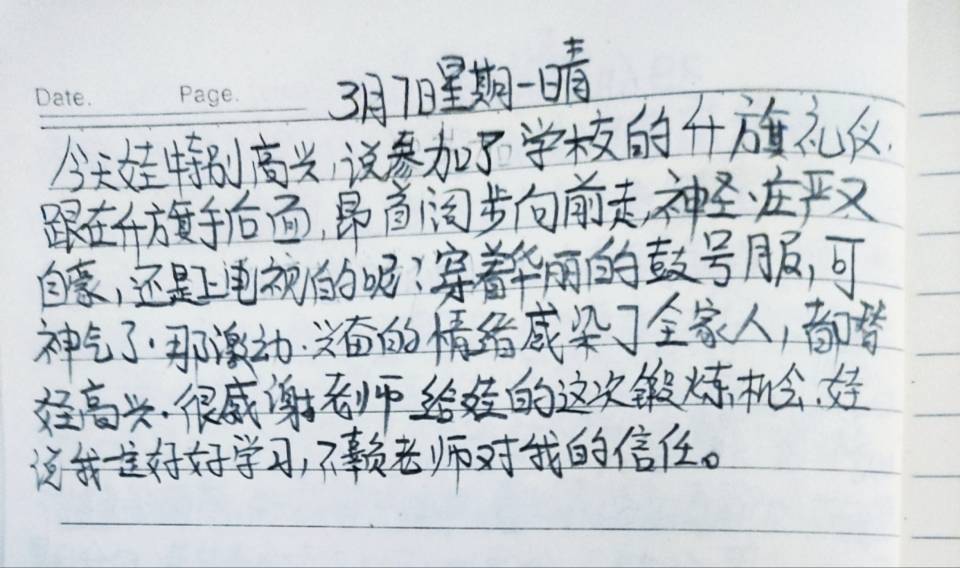 Date. Page.
3月7日星期一晴
今天娃特别高兴,说参加了学校的升旗礼仪.
跟在升旗手后面,昂首阔步向前走,神圣.庄严又
自豪,还是上电视的呢?穿着华丽的鼓号服,可
神气了.那激动.兴奋的情绪感染了全家人,都替
娃高兴.很感谢老师给娃的这次锻炼机会.娃
说我一定好好学习,不赖老师对我的信任。